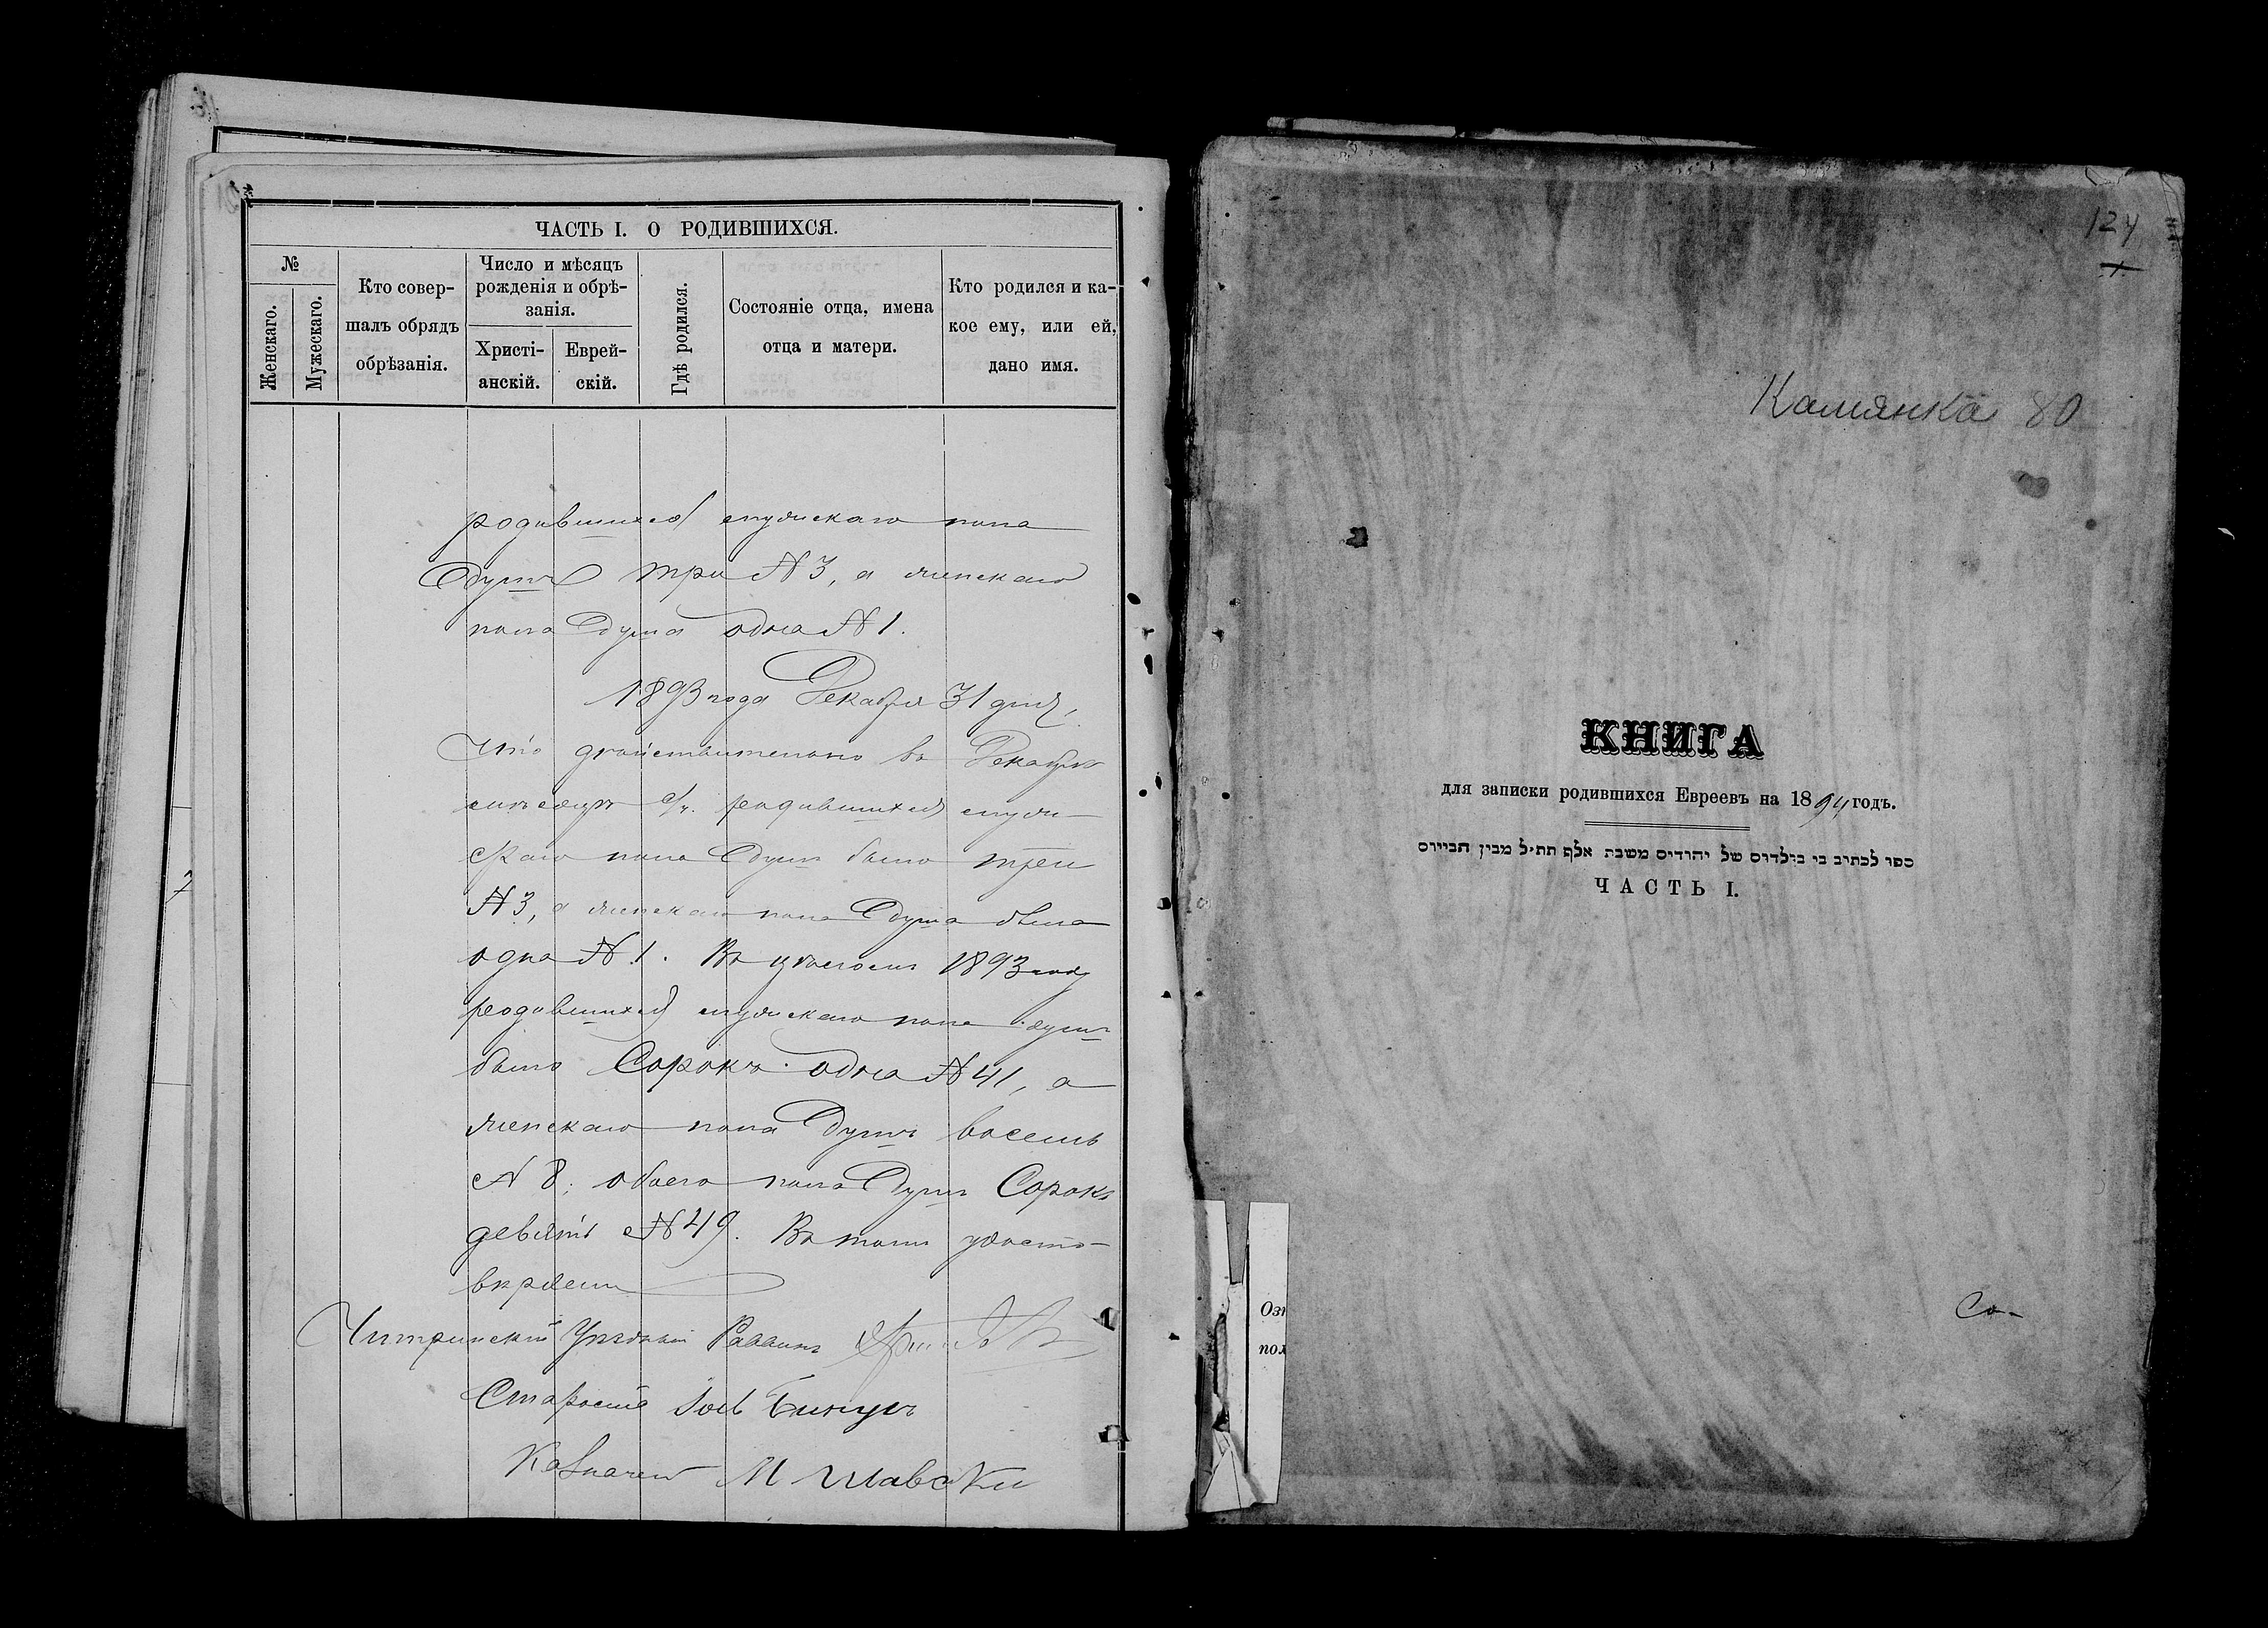 ЧАСТЬ I. О РОДИВШИХСЯ.
№
Женскаго.
Мужескаго.
Кто совер-
шалъ обрядъ
обрѣзанія.
Число и мѣсяцъ
рожденія и обрѣ-
занія.
Христі-
анскій.
Еврей-
скій.
Гдѣ родился.
Состояніе отца, имена
отца и матери.
Кто родился и ка-
кое ему, или ей,
дано имя.
родившихся мужскаго пола
Душъ три №3, а женскаго
пола Душа одна №1.
1893 года Декабря 31 дня,
Что дѣйствительно въ Декабрѣ
мѣсяцѣ с/г. родившихся муж-
скаго пола Душъ было три
№3, а женскаго пола Душа была
одна №1. Въ цѣломъ 1893 году
родившихся мужскаго пола душъ
было Сорокъ одна №41, а
женскаго пола Душъ восемь
№8; обоего пола Душъ Сорокъ
девять №49. Въ томъ удосто-
вѣряемъ
Чигиринскій Уѣздный Раввинъ
Староста
Казначей М
7
124
1.
Камянка 80
КНИГА
для записки родившихся Евреевъ на 1894 годъ.
ספר לכתוב בו בילדים של יהודים משנת אלף תת״ל מבין הביירים
ЧАСТЬ I.
Со-
Озн
пол